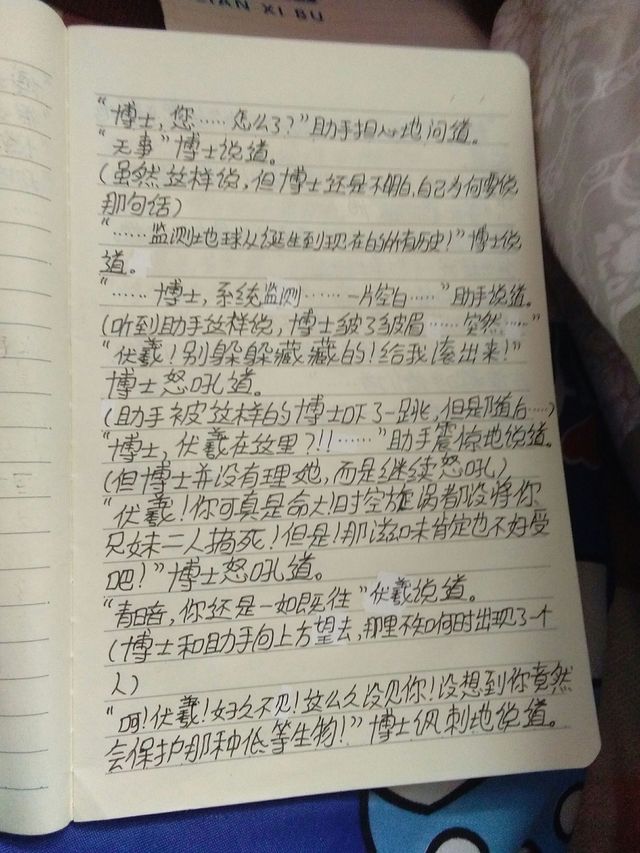 QIAN XI BU
“博士，您……怎么了？”助手担心地问道。
“无事”博士说道。
(虽然这样说，但博士还是不明白，自己为何要说
那句话)
“……监测地球从诞生到现在的所有历史！”博士说
道。
“……博士，系统监测……一片空白……”助手说道。
(听到助手这样说，博士皱了皱眉……突然……”
“伏羲！别躲躲藏藏的！给我滚出来！”
博士怒吼道。
(助手被这样的博士吓了一跳，但是随后……)
“博士，伏羲在这里？!!……”助手震惊地说道。
(但博士并没有理她，而是继续怒吼)
“伏羲！你可真是命大！时空旋涡都没将你
兄妹二人搞死！但是！那滋味肯定也不好受
吧！”博士怒吼道。
“青暗，你还是一如既往”伏羲说道。
(博士和助手向上方望去，那里不知何时出现了一个
人)
“呵！伏羲！好久不见！这么久没见你！没想到你竟然
会保护那种低等生物！”博士讽刺地说道。